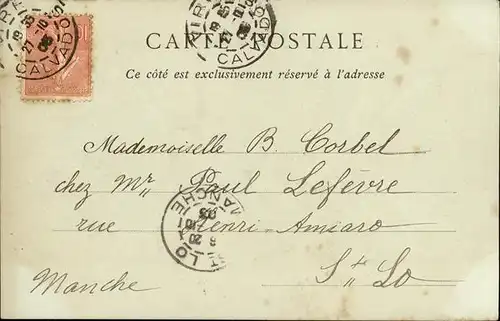 CARTE POSTALE
Ce côté est exclusivement réservé à l'adresse
CALVADO
CALVADO
Mademoiselle B. Corbel
chez Mr Paul Lefèvre
rue Henri-Amiard
St Lo
Manche
LO
MANCHE